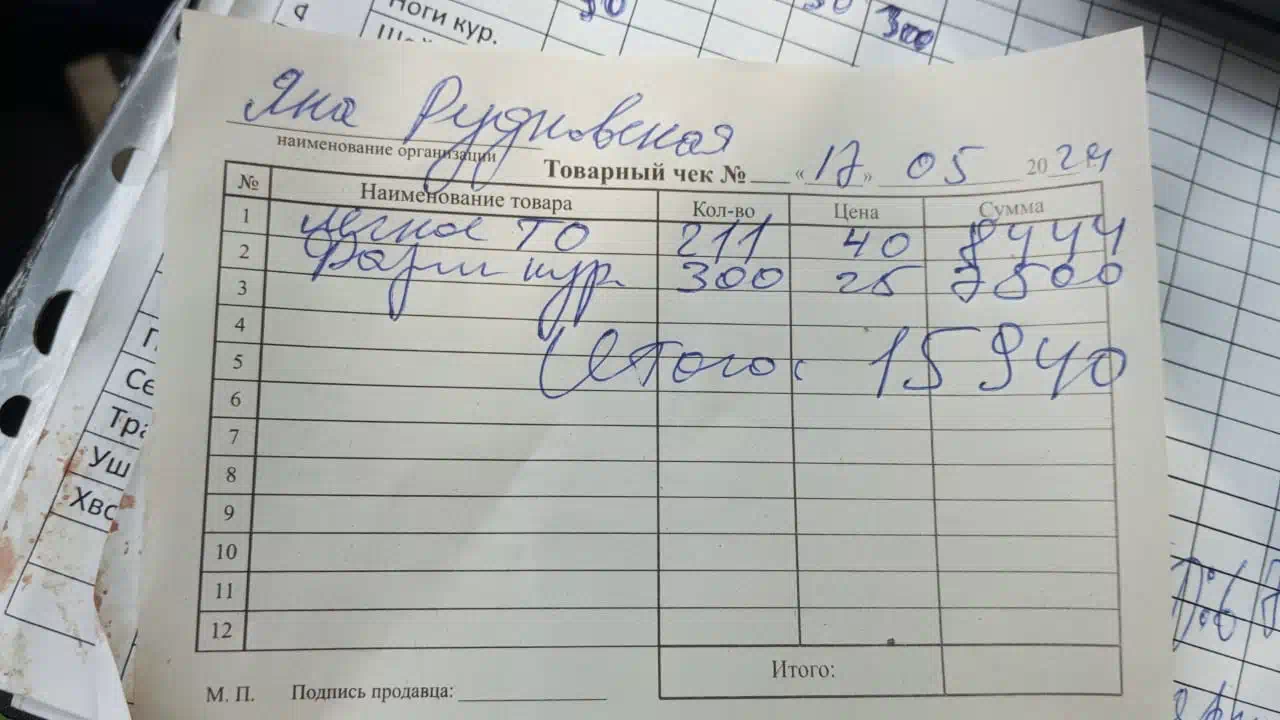 Ноги кур.
300
Яна Рудковская
наименование организации
Товарный чек № « 17 » 05 2024
№ Наименование товара Кол-во Цена Сумма
1 легкое ТО 211 40 8444
2 Фарш кур. 300 25 7500
3
4
5 Итого: 15940
6
7
8
9
10
11
12
Итого:
М. П. Подпись продавца:
Се
Тра
Уш
Хвс